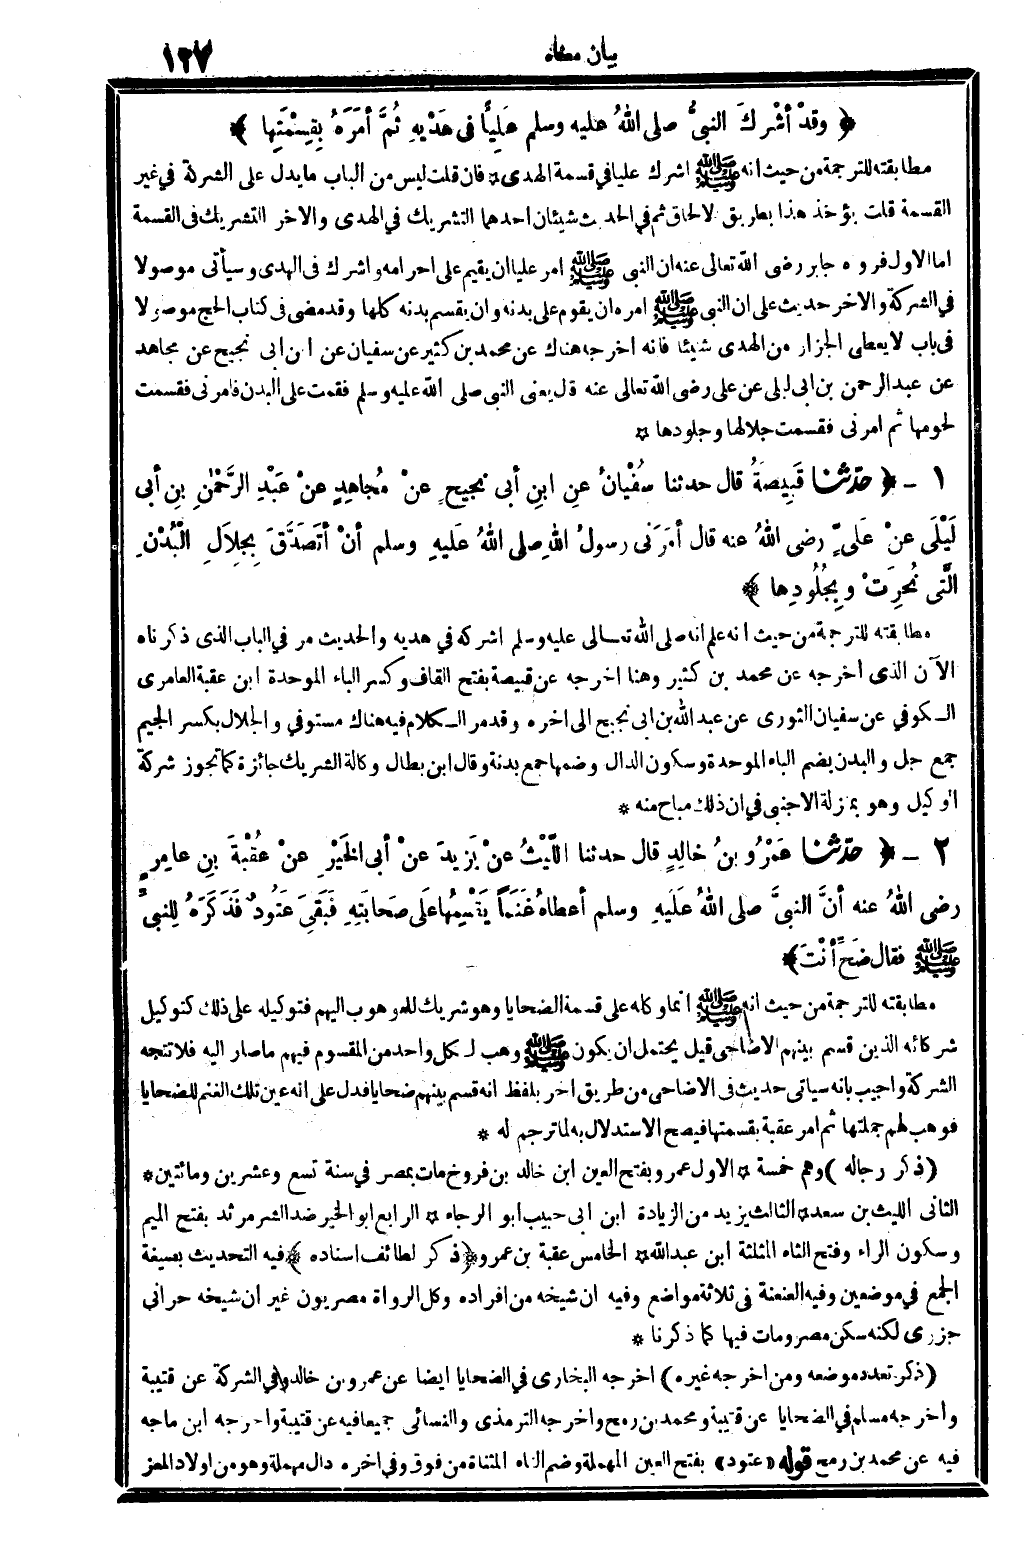 بيان معناه
١٢٧
﴿ وقدْ أشْرَكَ النبىُّ صلى اللهُ عليه وسلم عَلِيًّا فى هَدْيِهِ ثُمَّ أمَرَهُ بِقِسْمَتِها ﴾
مطابقته للترجمة من حيث انه ﷺ اشرك عليا في قسمة الهدى * فان قلت ليس من الباب ما يدل على الشركة في غير
القسمة قلت يؤخذ هذا بطريق الالحاق ثم في الحديث شيئان احدهما التشريك في الهدى والاخر التشريك فى القسمة
اما الاول فرواه جابر رضى الله تعالى عنه ان النبى ﷺ امر عليا ان يقيم على احرامه واشرك فى الهدى وسيأتى موصولا
في الشركة والاخر حديث على ان النبى ﷺ امره ان يقوم على بدنه وان يقسم بدنه كلها وقد مضى فى كتاب الحج موصولا
فى باب لا يعطى الجزار من الهدى شيئا فانه اخرجه هناك عن محمد بن كثير عن سفيان عن ابن ابى نجيح عن مجاهد
عن عبد الرحمن بن ابى ليلى عن على رضى الله تعالى عنه قال يعنى النبى صلى الله عليه وسلم فقمت على البدن فامرنى فقسمت
لحومها ثم امرنى فقسمت جلالها وجلودها *
١ - ﴿ حدّثنا قَبِيصَةُ قال حدثنا سُفْيانُ عنِ ابنِ أبى نجيحٍ عنْ مُجاهِدٍ عنْ عَبْدِ الرَّحْمٰنِ بنِ أبى
لَيْلَى عنْ عَلىٍّ رضى اللهُ عنه قال أمَرَنى رسولُ اللهِ صلى اللهُ عَليهِ وسلم أنْ أتَصَدَّقَ بِجِلاَلِ الْبُدْنِ
الَّتى نُحِرَتْ وبِجُلُودِها ﴾
مطابقته للترجمة من حيث انه علم انه صلى الله تعالى عليه وسلم اشركه في هديه والحديث مر في الباب الذى ذكرناه
الآن الذى أخرجه عن محمد بن كثير وهنا اخرجه عن قبيصة بفتح القاف وكسر الباء الموحدة ابن عقبة العامرى
الكوفي عن سفيان الثورى عن عبد الله بن ابى نجيح الى اخره وقد مر الكلام فيه هناك مستوفي والجلال بكسر الجيم
جمع جل والبدن بضم الباء الموحدة وسكون الدال وضمها جمع بدنة وقال ابن بطال وكالة الشريك جائزة كما تجوز شركة
الوكيل وهو بمنزلة الاجنبى في ان ذلك مباح منه *
٢ - ﴿ حدّثنا عَمْرُو بنُ خالِدٍ قال حدثنا اللَّيْثُ عنْ يَزِيدَ عنْ أبى الخَيْرِ عنْ عُقْبَةَ بنِ عامِرٍ
رضى اللهُ عنه أنَّ النبىَّ صلى اللهُ عَلَيهِ وسلم أعطاهُ غَنَمًا يَقْسِمُها عَلَى صَحابَتِهِ فَبَقِىَ عَتُودٌ فَذَكَرَهُ لِلنبىِّ
ﷺ فقال ضَحِّ أنْتَ ﴾
مطابقته للترجمة من حيث انه ﷺ انما وكله على قسمة الضحايا وهو شريك للموهوب اليهم فتوكيله على ذلك كتوكيل
شركائه الذين قسم بينهم الاضاحى قيل يحتمل ان يكون ﷺ وهب لكل واحد من المقسوم فيهم ما صار اليه فلا تتجه
الشركة واجيب بانه سياتى حديث فى الاضاحى من طريق اخر بلفظ انه قسم بينهم ضحايا فدل على انه عين تلك الغنم للضحايا
فوهب لهم جملتها ثم امر عقبة بقسمتها فيصح الاستدلال به لما ترجم له *
(ذكر رجاله) وهم خمسة * الاول عمرو بفتح العين ابن خالد بن فروخ مات بمصر في سنة تسع وعشرين ومائتين *
الثانى الليث بن سعد * الثالث يزيد من الزيادة ابن ابى حبيب ابو الرجاء * الرابع ابو الخير ضد الشر مرثد بفتح الميم
وسكون الراء وفتح الثاء المثلثة ابن عبد الله * الخامس عقبة بن عمرو ﴿ذكر لطائف اسناده﴾ فيه التحديث بصيغة
الجمع في موضعين وفيه العنعنة فى ثلاثة مواضع وفيه ان شيخه من افراده وكل الرواة مصريون غير ان شيخه حرانى
جزرى لكنه سكن مصر ومات فيها كما ذكرنا *
(ذكر تعدد موضعه ومن اخرجه غيره) اخرجه البخارى في الضحايا ايضا عن عمرو بن خالد وفي الشركة عن قتيبة
وأخرجه مسلم في الضحايا عن قتيبة ومحمد بن رمح واخرجه الترمذى والنسائى جميعا فيه عن قتيبة واخرجه ابن ماجه
فيه عن محمد بن رمح قوله «عتود» بفتح العين المهملة وضم التاء المثناة من فوق وفى اخره دال مهملة وهو من اولاد المعز